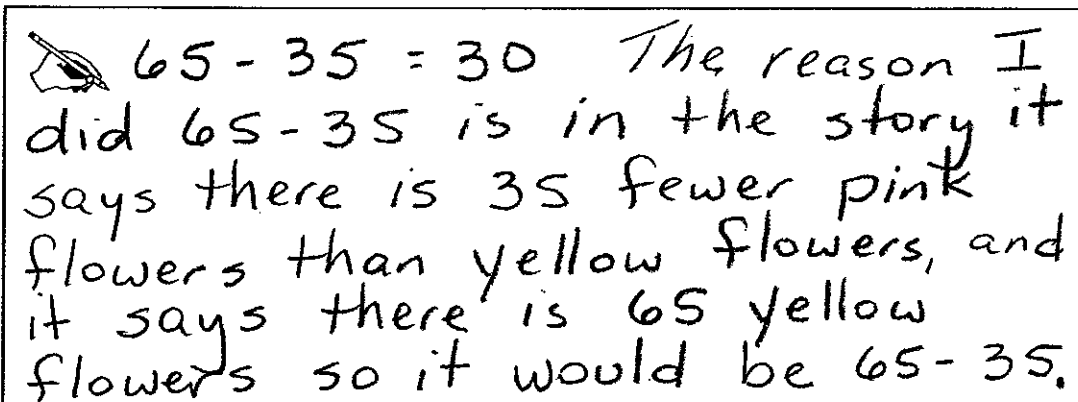 65 - 35 = 30 The reason I
did 65-35 is in the story it
says there is 35 fewer pink
flowers than yellow flowers, and
it says there is 65 yellow
flowers so it would be 65-35.